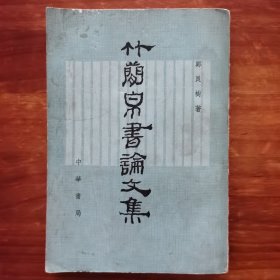 竹簡帛書論文集
鄭良樹著
中華書局